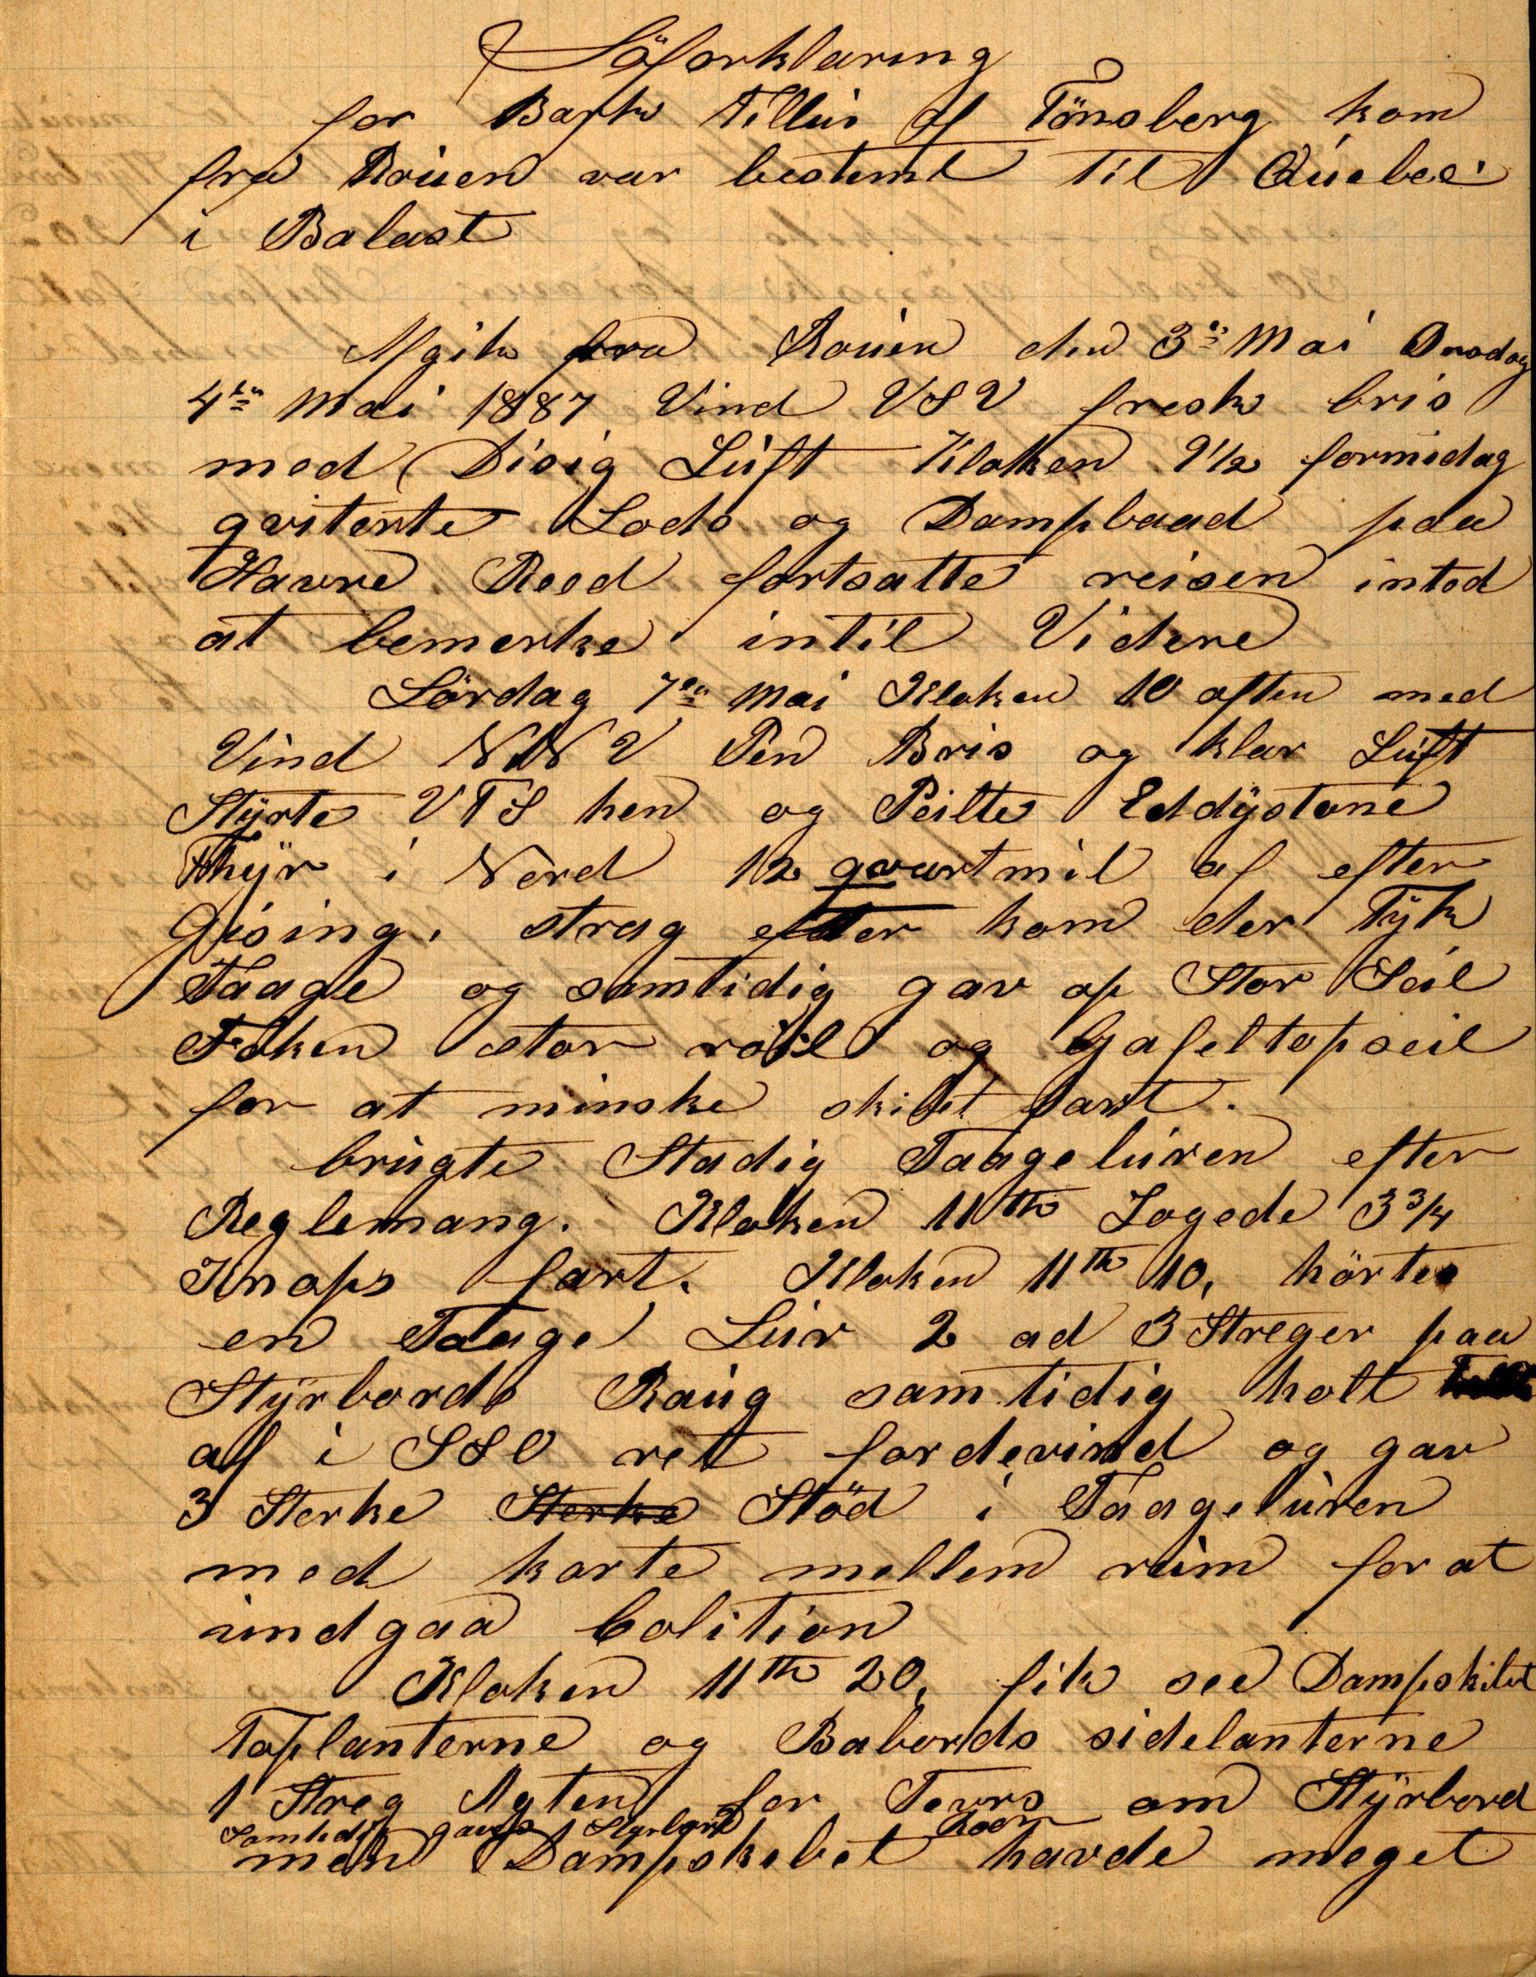 Söforklaring
for Bark Tillid af Tönsberg kom
fra Roùen var bestemt til Qùebec
i Balast
Afgik fra Roùen den 3de Mai Onsdag
4de Mai 1887 Vind VSV fresk bris
med Disig Lùft Kloken 9 1/2 formidag
qviterte Lods og Dampbaad paa
Havre Reed fortsatte reisen inted
at bemerke intil Videre
Lördag 7de Mai Kloken 10 aften med
Vind NNV Pen Bris og klar Lùft
Stÿrte VTS hen og Peilte Eddÿstone
Fhÿr i Nord 12 qvartmil af efter
Gising. strag efter kom der Tÿk
Taage og samtidig gav op Stor Seil
Foken stor röil og Gafeltopseil
for at minske skibet fart.
brùgte Stadig Taagelùren efter
Reglemang. Kloken 11th Logede 3 3/4
Knops fart. Kloken 11th 10, hörte
en Taage Lùr 2 ad 3 Streger paa
Stÿrbords Baùg samtidig holt
af i SSO ret fordevind og gav
3 Sterke Sterke Stöd i Taagelùren
med korte mellem rùm for at
ùndgaa Colition
Kloken 11th 20, fik see Dampskibet
Toplanterne og Babords sidelanterne
1 Streg Agten for Tvers om Stÿrbord
Samtidig gaves Styrbord Roer
men Dampskibet havde meget